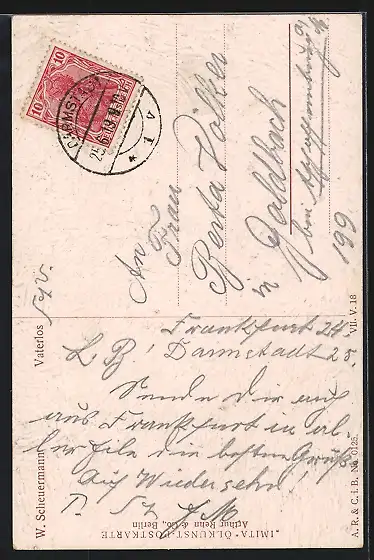 10 10
DARMSTADT
25.6.19.
* 1 v
An Frau
Berta Völker
in Goldbach
bei Aschaffenburg a/
199
Frankfurt 24.
L B! Darmstadt 25.
Sende Dir auf
aus Frankfurt in al-
ler Eile die besten Grüße
Auf Wiedersehn!
W. Scheuermann Vaterlos
A. R. & C. i. B. No. 0125. VII. V. 18
"IMITA" ÖLKUNST-POSTKARTE
Arthur Rehn & Co., Berlin